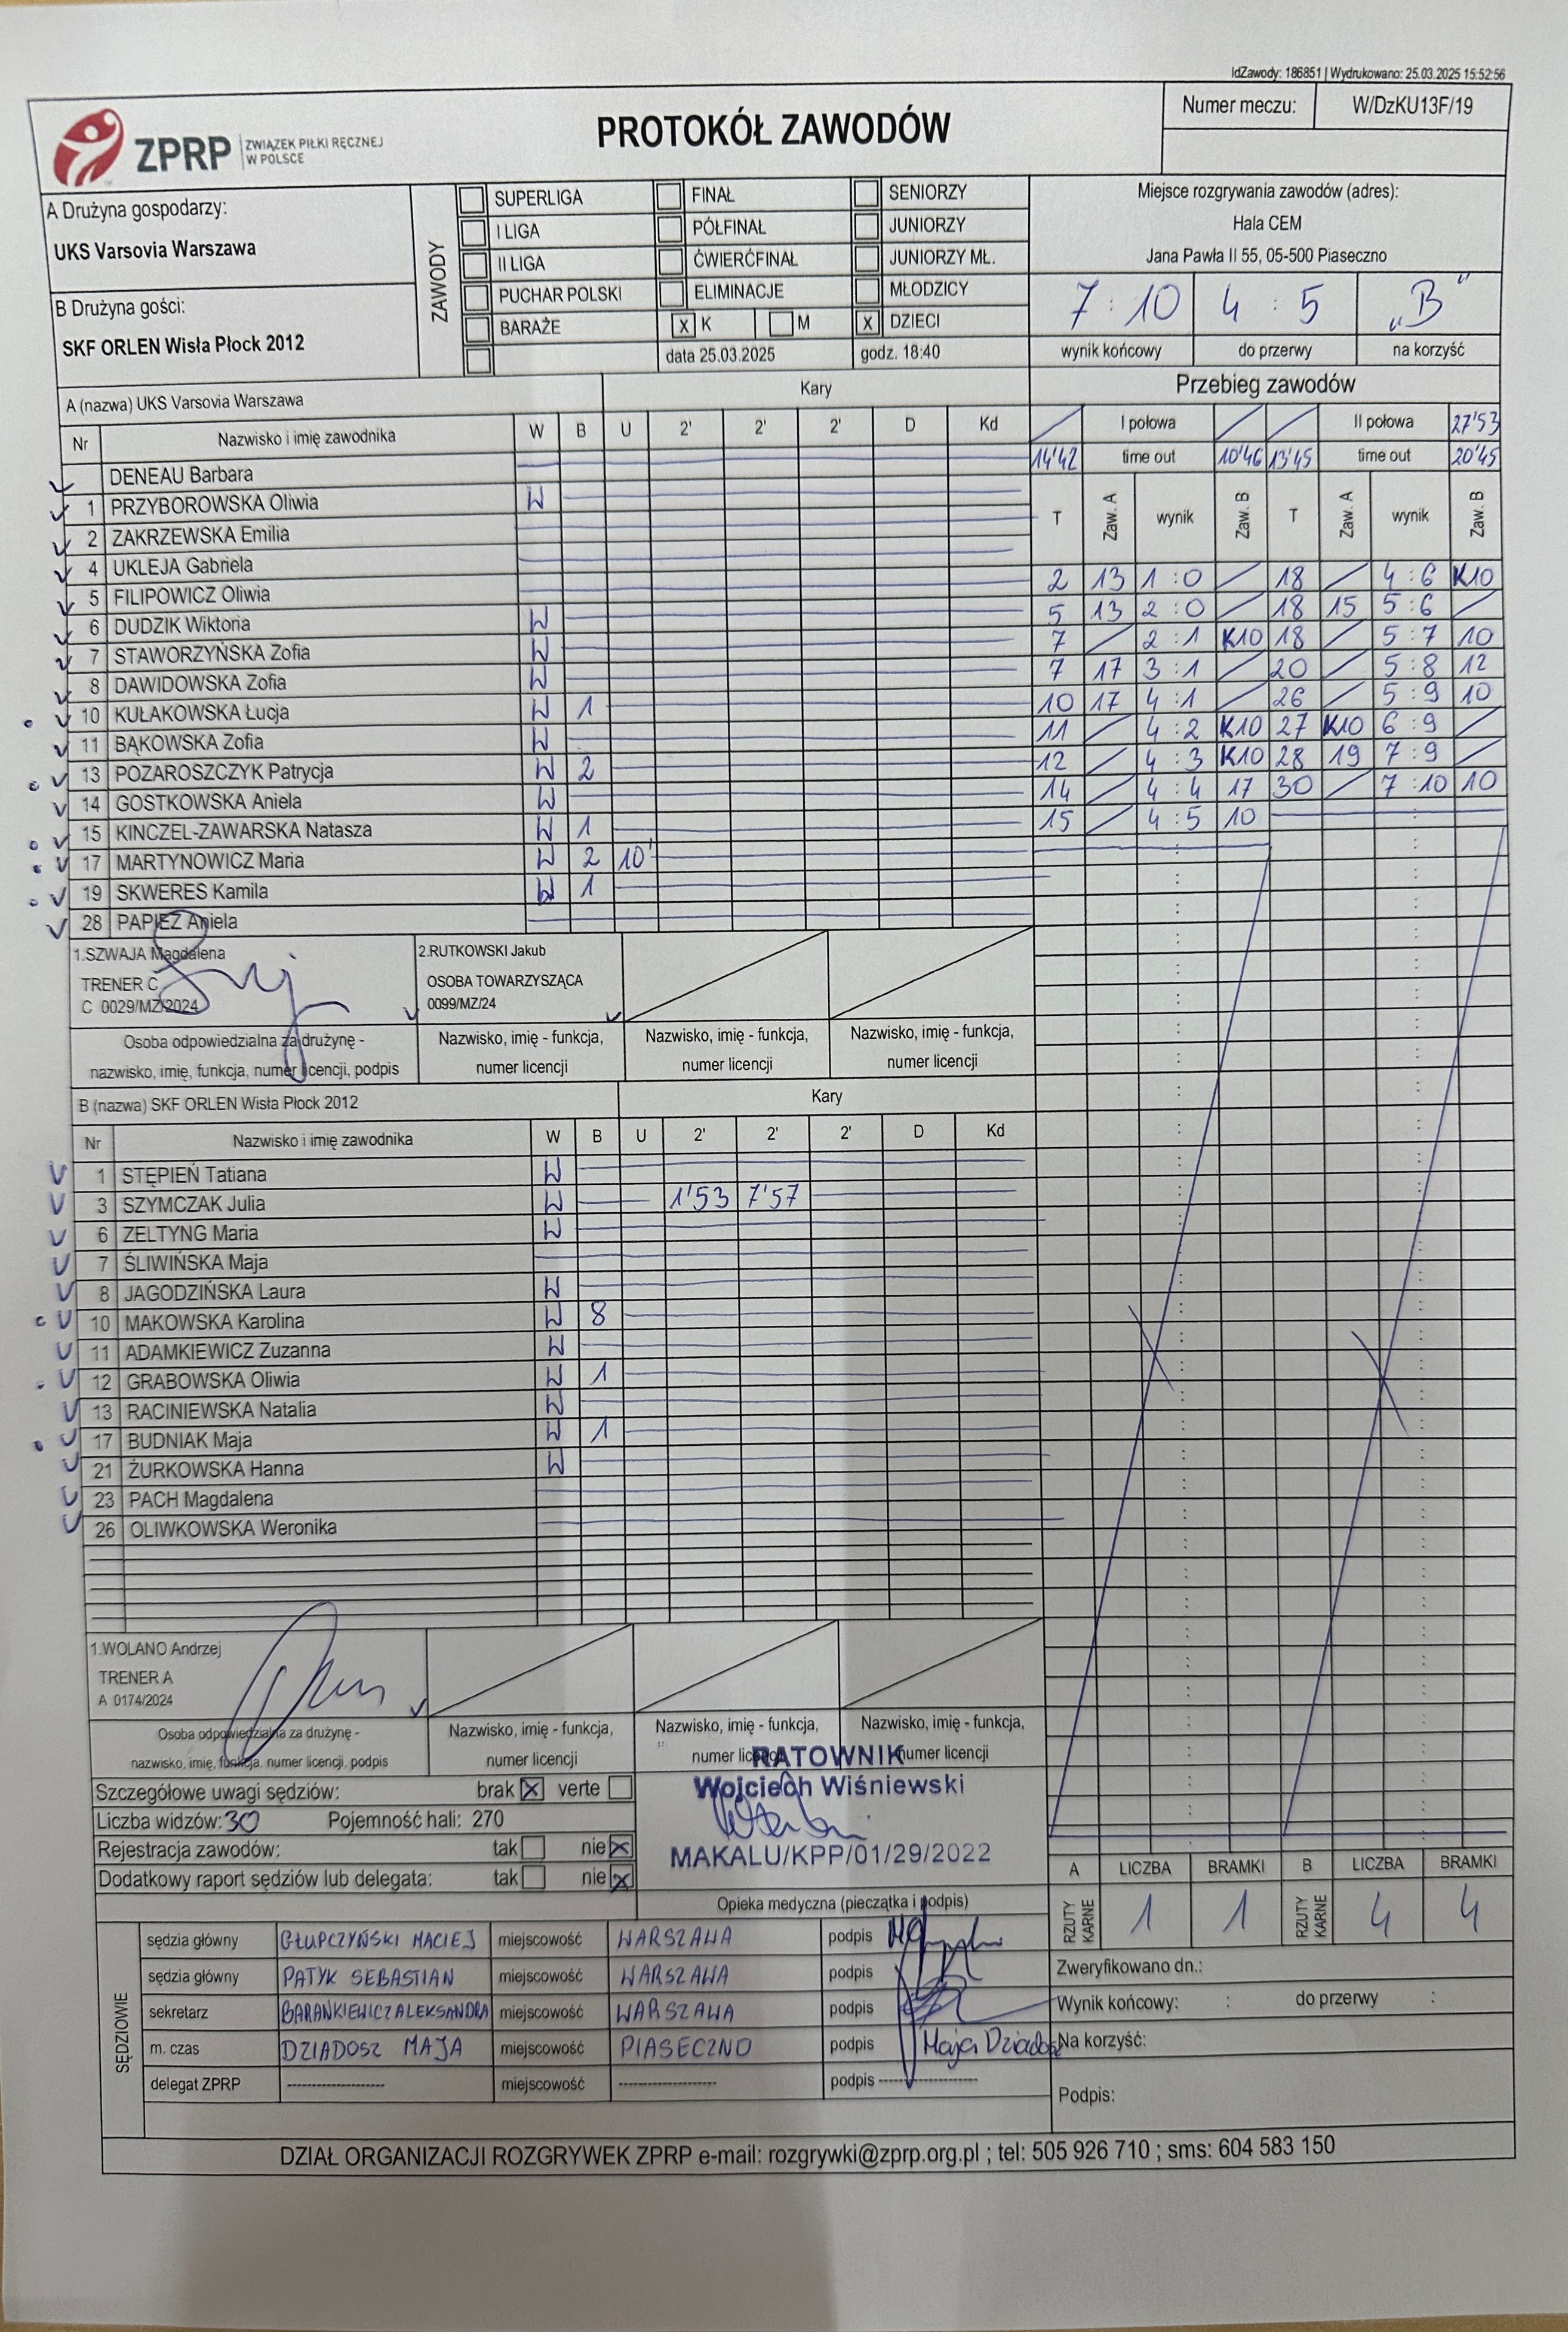 IdZawody: 186851 | Wydrukowano: 25.03.2025 15:52:56
ZPRP ZWIĄZEK PIŁKI RĘCZNEJ W POLSCE
PROTOKÓŁ ZAWODÓW
Numer meczu: W/DzKU13F/19
A Drużyna gospodarzy:
UKS Varsovia Warszawa
B Drużyna gości:
SKF ORLEN Wisła Płock 2012
ZAWODY
SUPERLIGA FINAŁ SENIORZY
I LIGA PÓŁFINAŁ JUNIORZY
II LIGA ĆWIERĆFINAŁ JUNIORZY MŁ.
PUCHAR POLSKI ELIMINACJE MŁODZICY
BARAŻE X K M X DZIECI
data 25.03.2025 godz. 18:40
Miejsce rozgrywania zawodów (adres):
Hala CEM
Jana Pawła II 55, 05-500 Piaseczno
7 : 10 4 : 5 „B"
wynik końcowy do przerwy na korzyść
A (nazwa) UKS Varsovia Warszawa Kary
Nr Nazwisko i imię zawodnika W B U 2' 2' 2' D Kd
DENEAU Barbara
1 PRZYBOROWSKA Oliwia W
2 ZAKRZEWSKA Emilia
4 UKLEJA Gabriela
5 FILIPOWICZ Oliwia
6 DUDZIK Wiktoria W
7 STAWORZYŃSKA Zofia W
8 DAWIDOWSKA Zofia W
10 KUŁAKOWSKA Łucja W 1
11 BĄKOWSKA Zofia W
13 POZAROSZCZYK Patrycja W 2
14 GOSTKOWSKA Aniela W
15 KINCZEL-ZAWARSKA Natasza W 1
17 MARTYNOWICZ Maria W 2 10'
19 SKWERES Kamila W 1
28 PAPIEŻ Aniela
1.SZWAJA Magdalena
TRENER C
C 0029/MZ/2024
2.RUTKOWSKI Jakub
OSOBA TOWARZYSZĄCA
0099/MZ/24
Osoba odpowiedzialna za drużynę -
nazwisko, imię, funkcja, numer licencji, podpis
Nazwisko, imię - funkcja,
numer licencji
Nazwisko, imię - funkcja,
numer licencji
Nazwisko, imię - funkcja,
numer licencji
B (nazwa) SKF ORLEN Wisła Płock 2012 Kary
Nr Nazwisko i imię zawodnika W B U 2' 2' 2' D Kd
1 STĘPIEŃ Tatiana W
3 SZYMCZAK Julia W 1'53 7'57
6 ZELTYNG Maria W
7 ŚLIWIŃSKA Maja
8 JAGODZIŃSKA Laura W
10 MAKOWSKA Karolina W 8
11 ADAMKIEWICZ Zuzanna W
12 GRABOWSKA Oliwia W 1
13 RACINIEWSKA Natalia W
17 BUDNIAK Maja W 1
21 ŻURKOWSKA Hanna W
23 PACH Magdalena
26 OLIWKOWSKA Weronika
1.WOLANO Andrzej
TRENER A
A 0174/2024
Osoba odpowiedzialna za drużynę -
nazwisko, imię, funkcja, numer licencji, podpis
Nazwisko, imię - funkcja,
numer licencji
Nazwisko, imię - funkcja,
numer licencji
Nazwisko, imię - funkcja,
numer licencji
Przebieg zawodów
I połowa II połowa 27'53
14'42 time out 10'46 13'45 time out 20'45
T Zaw. A wynik Zaw. B T Zaw. A wynik Zaw. B
2 13 1 : 0 / 18 / 4 : 6 K10
5 13 2 : 0 / 18 15 5 : 6 /
7 / 2 : 1 K10 18 / 5 : 7 10
7 17 3 : 1 / 20 / 5 : 8 12
10 17 4 : 1 / 26 / 5 : 9 10
11 / 4 : 2 K10 27 K10 6 : 9 /
12 / 4 : 3 K10 28 19 7 : 9 /
14 / 4 : 4 17 30 / 7 : 10 10
15 / 4 : 5 10
Szczegółowe uwagi sędziów: brak X verte
Liczba widzów: 30 Pojemność hali: 270
Rejestracja zawodów: tak nie X
Dodatkowy raport sędziów lub delegata: tak nie X
RATOWNIK
Wojciech Wiśniewski
MAKALU/KPP/01/29/2022
Opieka medyczna (pieczątka i podpis)
A LICZBA BRAMKI B LICZBA BRAMKI
RZUTY KARNE 1 1 RZUTY KARNE 4 4
SĘDZIOWIE
sędzia główny GŁUPCZYŃSKI MACIEJ miejscowość WARSZAWA podpis
sędzia główny PATYK SEBASTIAN miejscowość WARSZAWA podpis
sekretarz BARANKIEWICZ ALEKSANDRA miejscowość WARSZAWA podpis
m. czas DZIADOSZ MAJA miejscowość PIASECZNO podpis Maja Dziadosz
delegat ZPRP -------------------- miejscowość -------------------- podpis --------------------
Zweryfikowano dn.:
Wynik końcowy: : do przerwy :
Na korzyść:
Podpis:
DZIAŁ ORGANIZACJI ROZGRYWEK ZPRP e-mail: rozgrywki@zprp.org.pl ; tel: 505 926 710 ; sms: 604 583 150